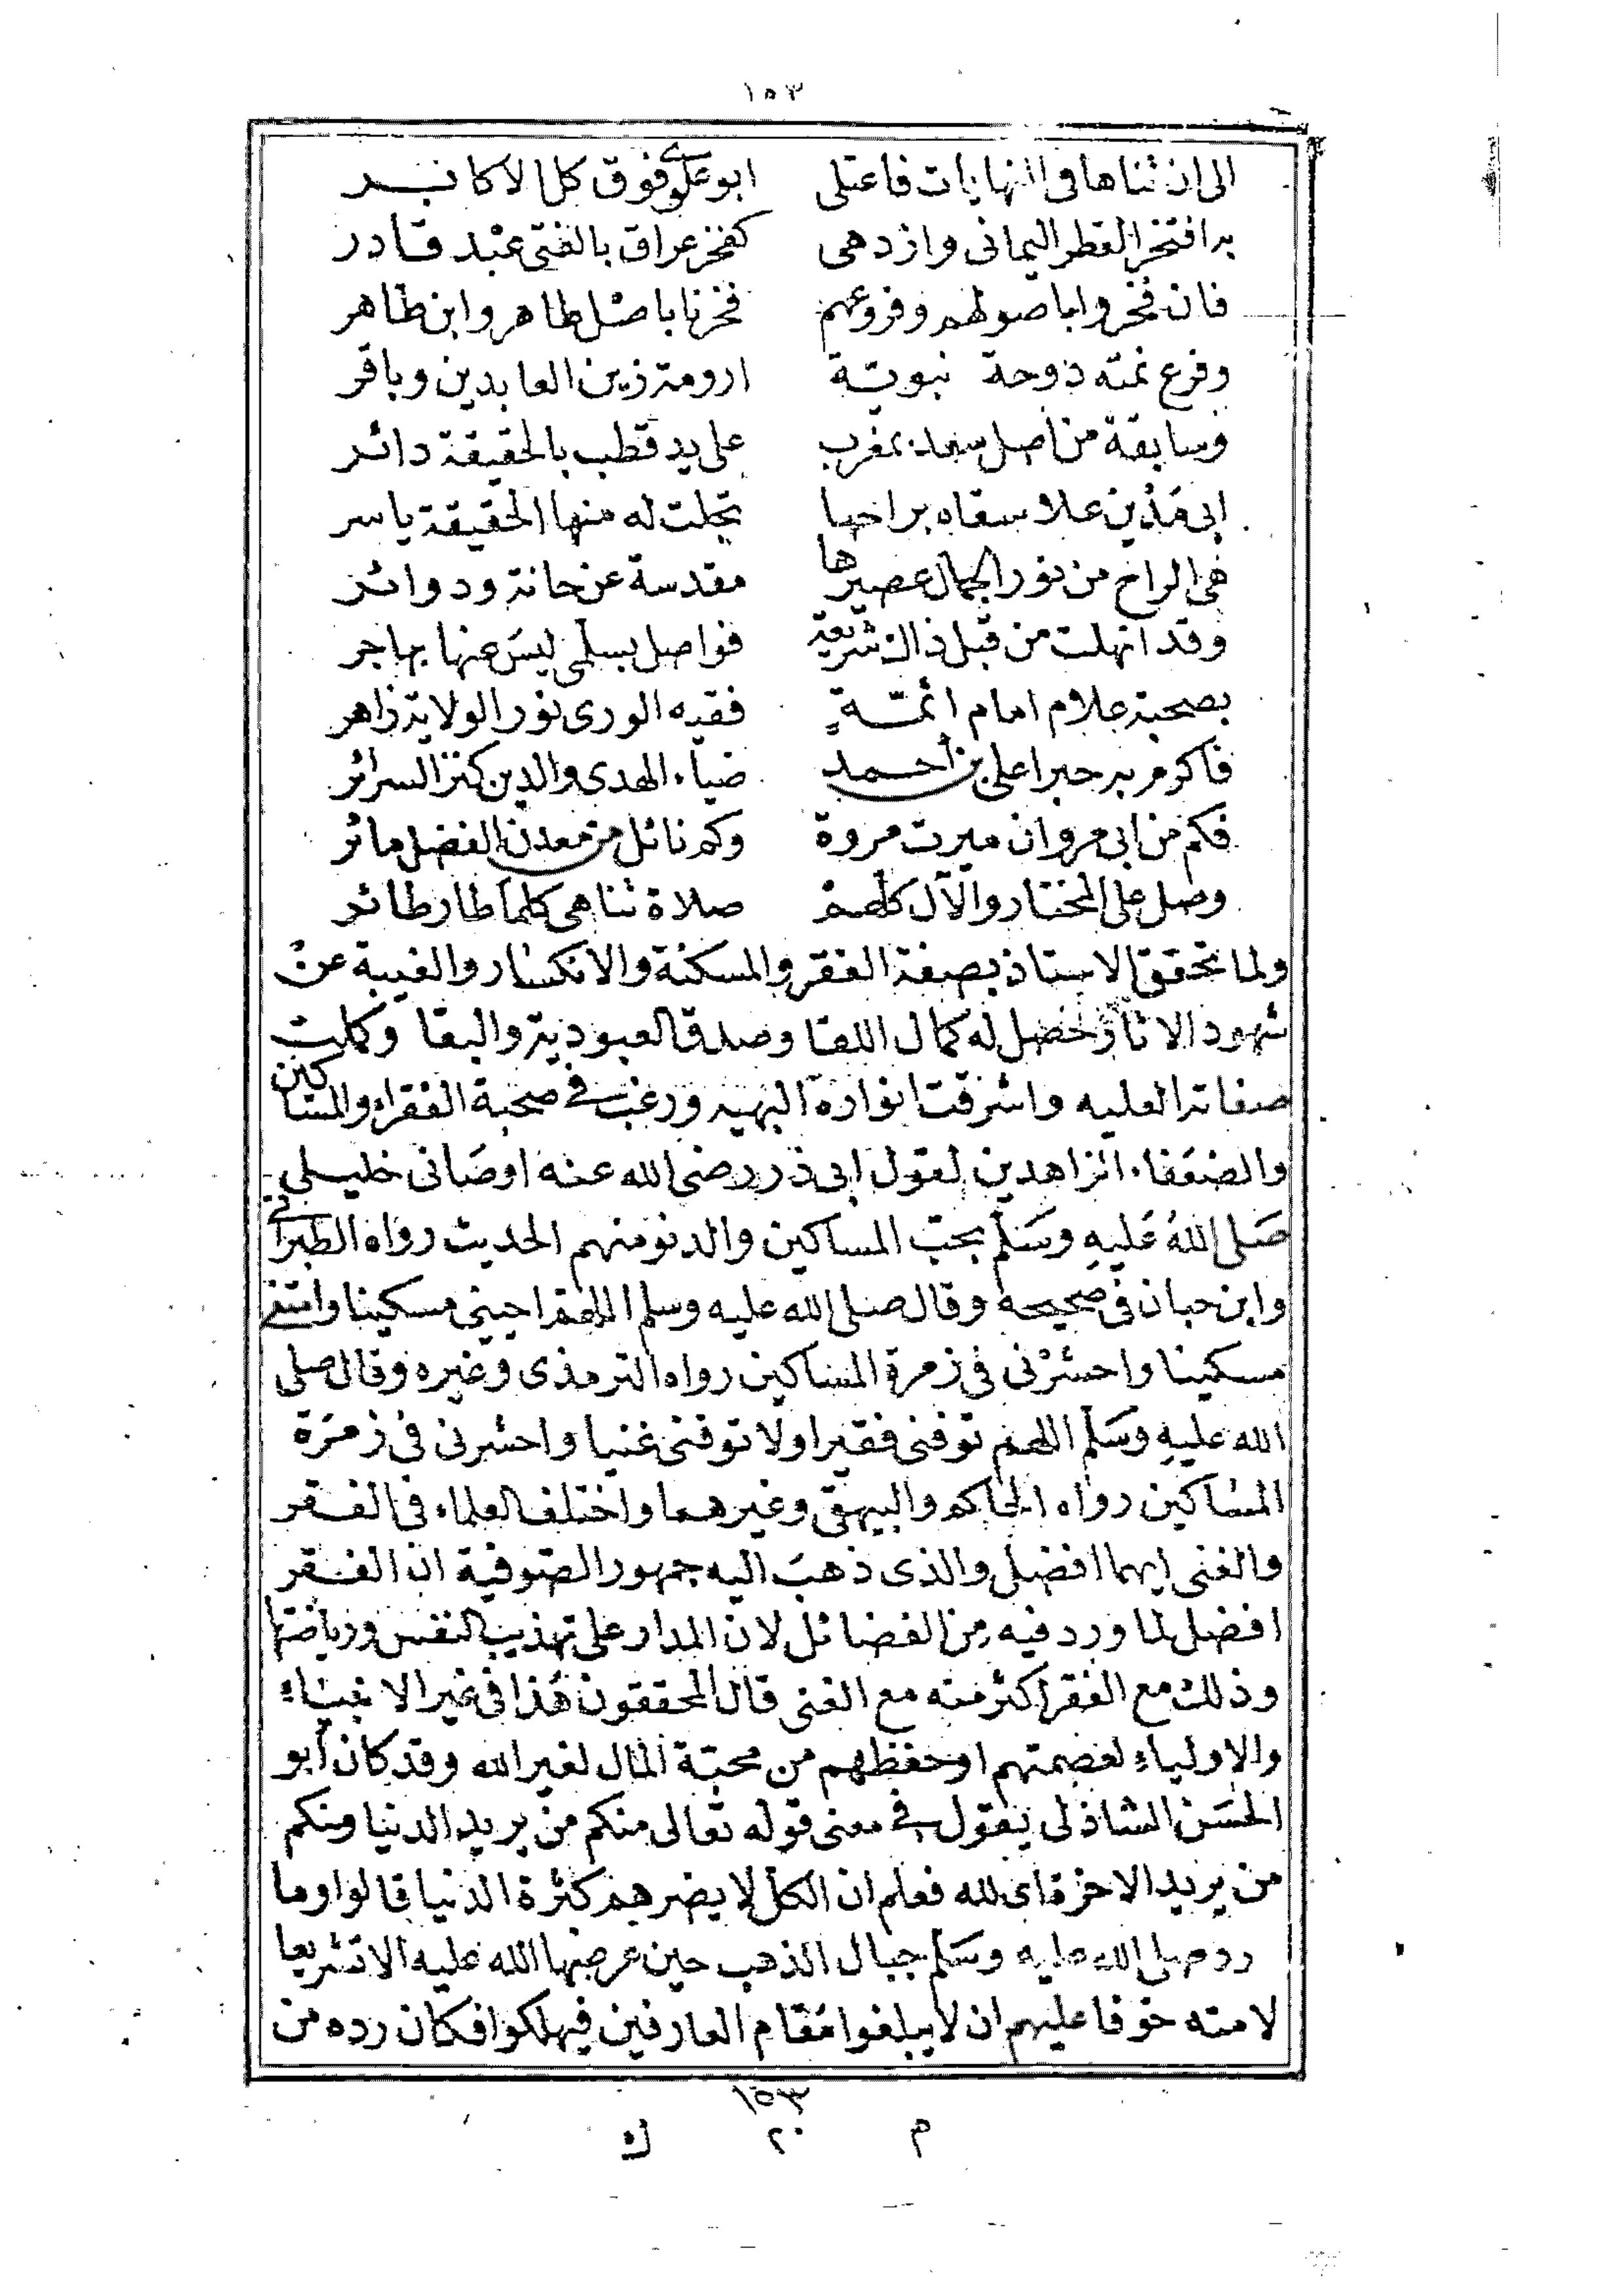 ١٥٣
الى ان تناهى فى النهايات فاعتلى ابو علوى فوق كل الاكابـــر
به افتخر القطر اليمانى وازدهى كفخر عراق بالفتى عبد قـادر
فان فخروا باصولهم وفروعهم فخرنا باصل طاهر وابن طاهر
وفرع نمته دوحة نبويـة ارومة زين العابدين وباقر
وسابقة من اصل سعد بمغرب على يد قطب بالحقيقة دائـر
ابى مدين علا سقاه براحها تجلت له منها الحقيقة ياسر
هى الراح من نور الجمال عصيرها مقدسة عن حانة ودوائـر
وقد انهلت من قبل ذاك شريعة فواصل بسلمى ليس عنها بهاجر
بصحبة علام امام ائمـة فقيه الورى نور الولاية زاهر
فاكرم به حبرا على بن أحـمد ضياء الهدى والدين كنز السرائر
فكم من ابى مروان ميرت مروة وكم نائل من معدن الفضل مائر
وصل على المختار والآل كلهم صلاة تناهى كلما طار طائر
ولما تحقق الاستاذ بصفة الفقر والمسكنة والانكسار والغيبة عن
شهود الاثار وحصل له كمال اللقا وصدق العبودية والبقا وكملت
صفاته العليه واشرقت انواره البهيه ورغب فى صحبة الفقراء والمساكين
والضعفاء الزاهدين لقول ابى ذر رضى الله عنه اوصانى خليلى
صلى الله عليه وسلم بحب المساكين والدنو منهم الحديث رواه الطبرانى
وابن حبان فى صحيحه وقال صلى الله عليه وسلم اللهم احينى مسكينا وامتنى
مسكينا واحشرنى فى زمرة المساكين رواه الترمذى وغيره وقال صلى
الله عليه وسلم اللهم توفنى فقيرا ولا توفنى غنيا واحشرنى فى زمرة
المساكين رواه الحاكم والبيهقى وغيرهما واختلف العلماء فى الفـقر
والغنى ايهما افضل والذى ذهب اليه جمهور الصوفية ان الفـقر
افضل لما ورد فيه من الفضائل لان المدار على تهذيب النفس ورياضتها
وذلك مع الفقر اكثر منه مع الغنى قال المحققون هذا فى غير الانبياء
والاولياء لعصمتهم او حفظهم من محبة المال لغير الله وقد كان أبو
الحسن الشاذلى يقول فى معنى قوله تعالى منكم من يريد الدنيا ومنكم
من يريد الاخرة اى لله فعلم ان الكل لا يضرهم كثرة الدنيا قالوا وما
رد صلى الله عليه وسلم جبال الذهب حين عرضها الله عليه الا تشريعا
لامته خوفا عليهم ان لا يبلغوا مقام العارفين فيهلكوا فكان رده من
١٥٣
م ٢٠ ك